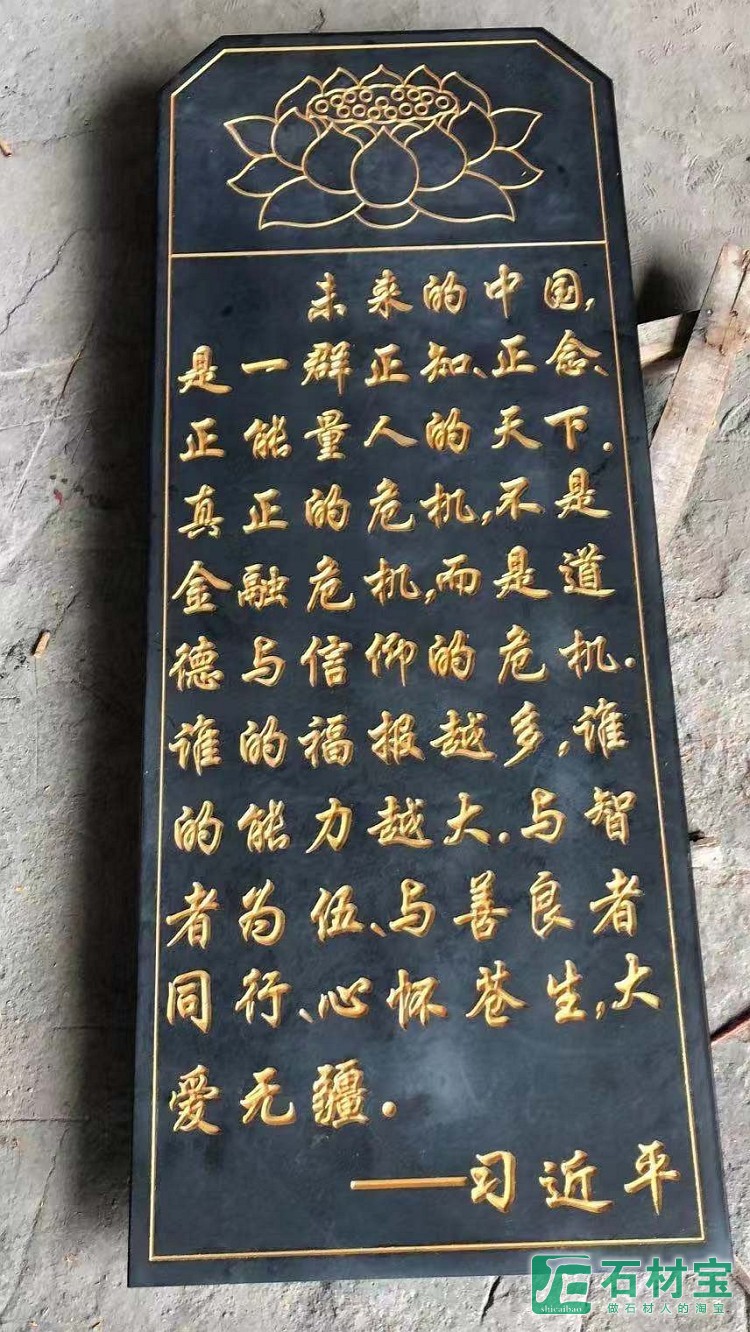 未来的中国，
是一群正知、正念、
正能量人的天下.
真正的危机，不是
金融危机，而是道
德与信仰的危机.
谁的福报越多，谁
的能力越大.与智
者为伍、与善良者
同行、心怀苍生，大
爱无疆.
——习近平
石材宝
shicaibao
做石材人的淘宝